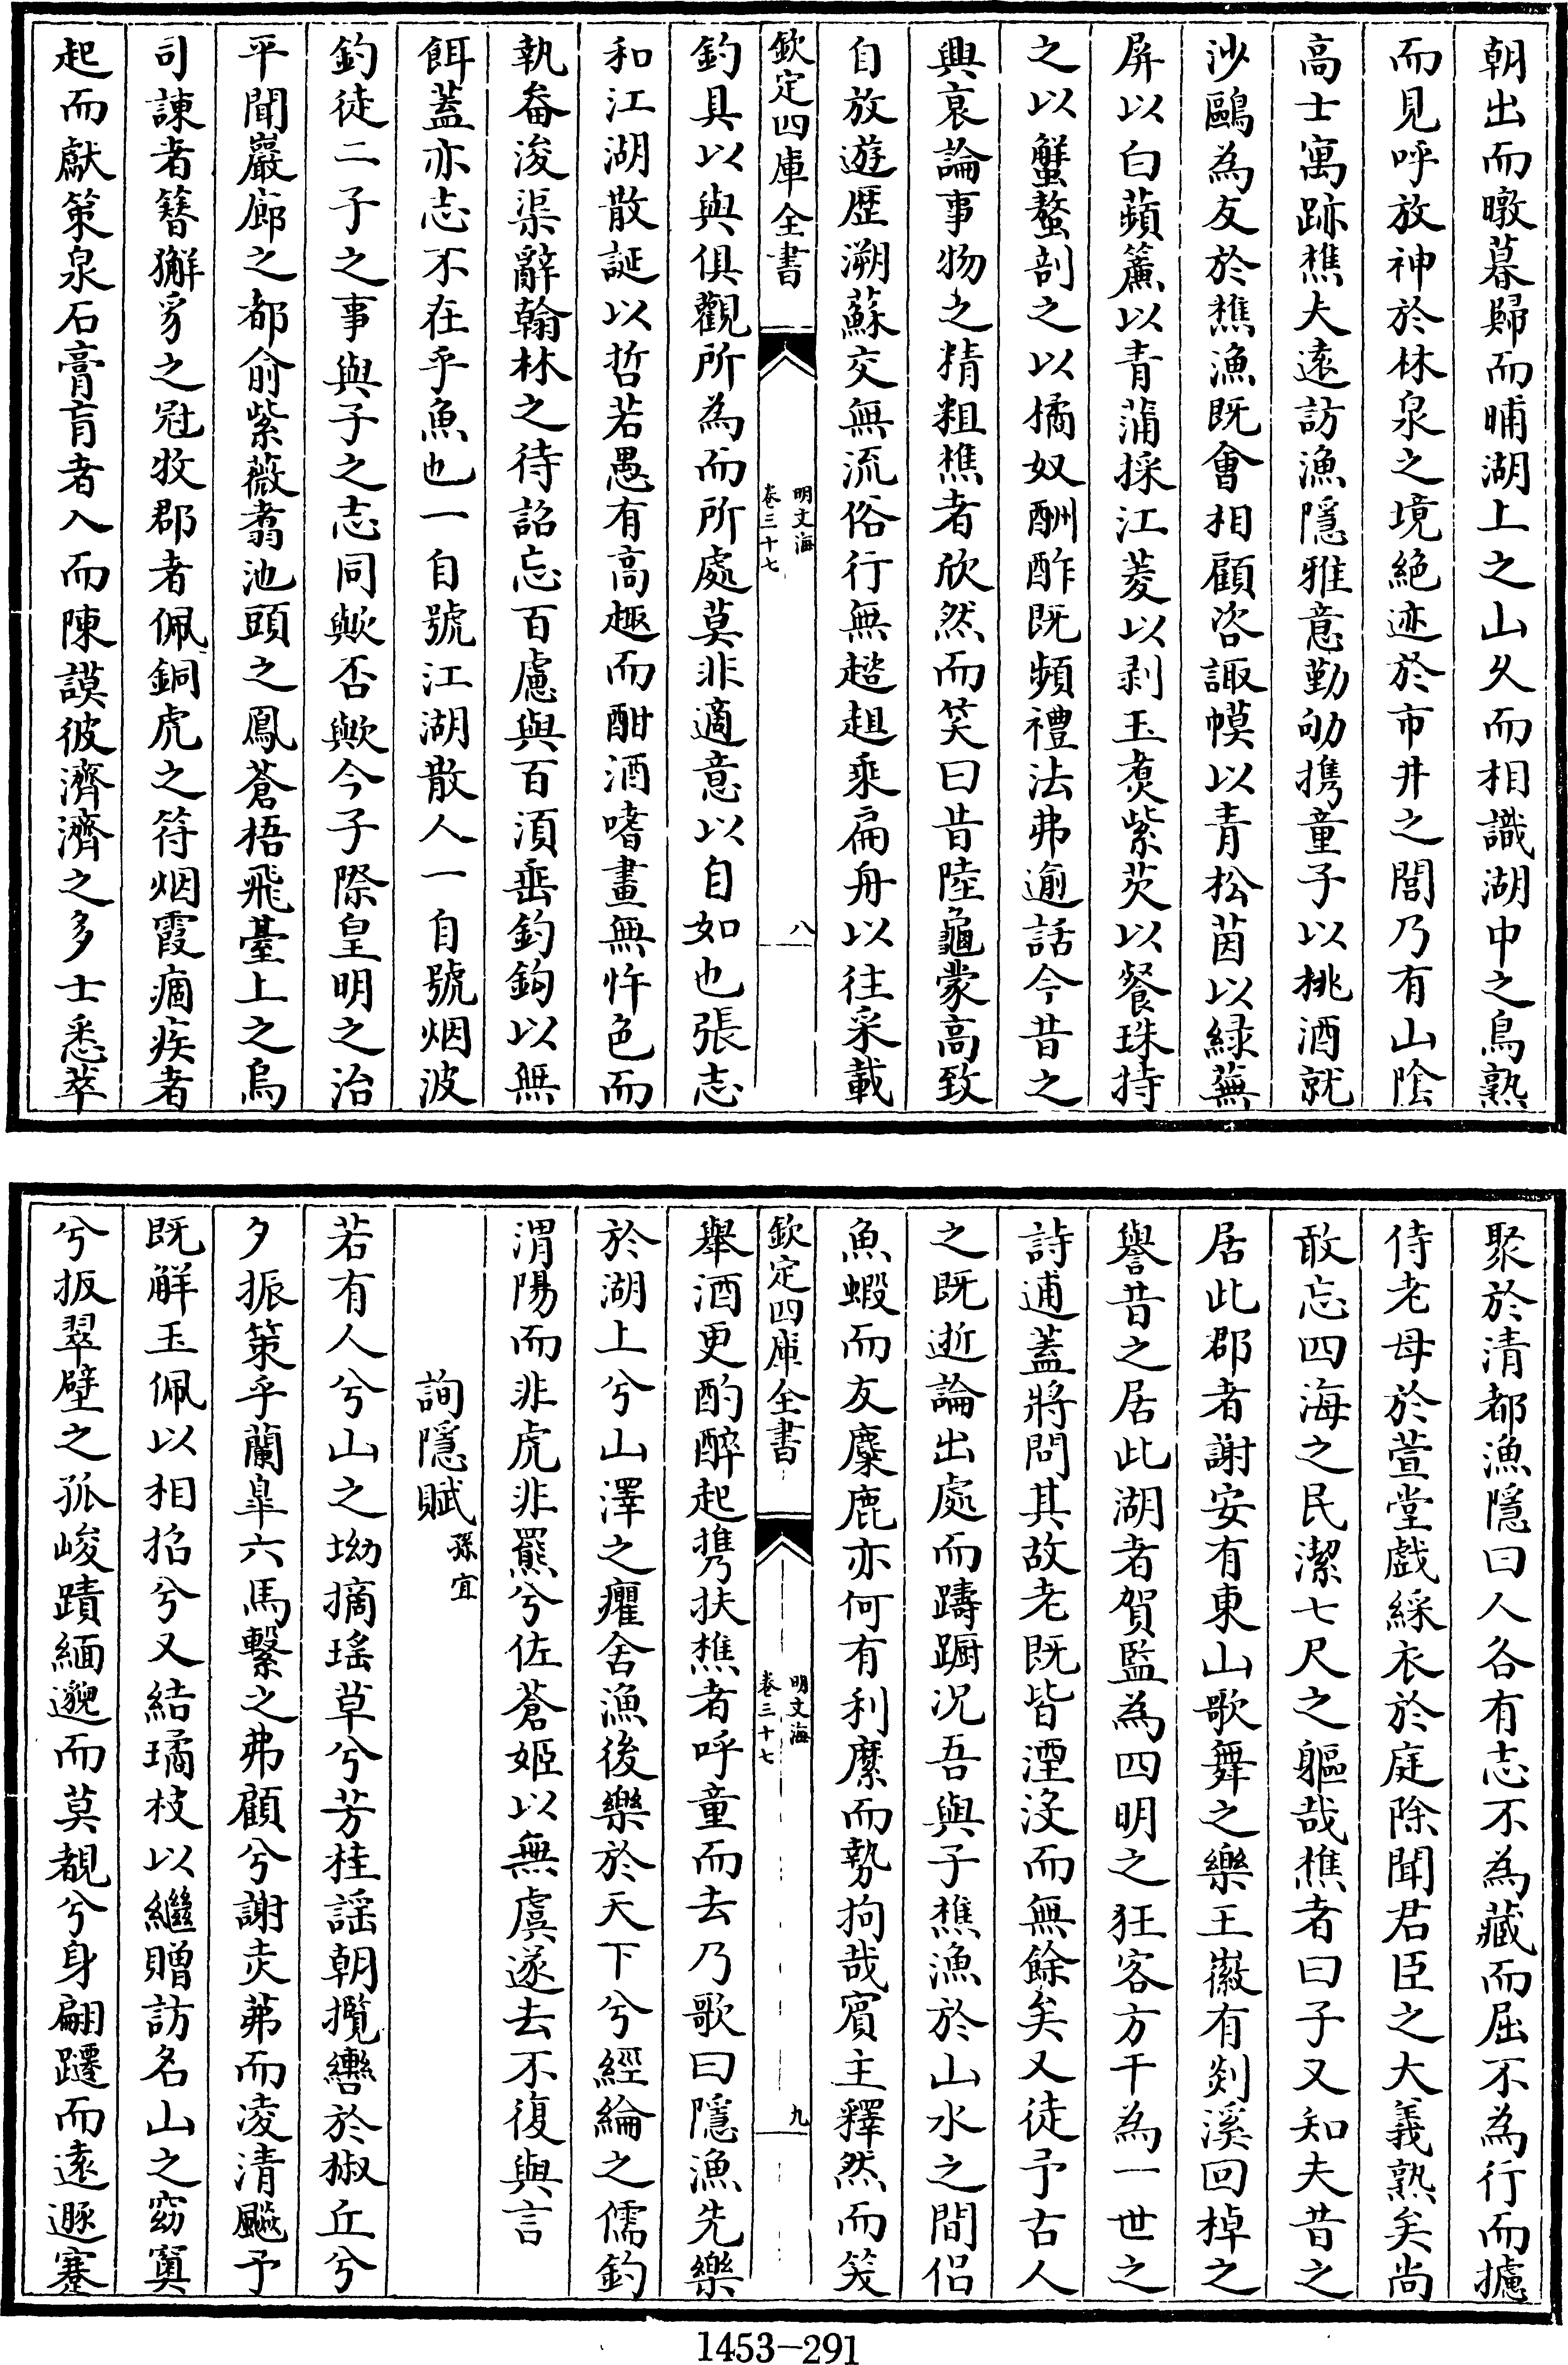 朝出而暾暮歸而晡湖上之山久而相識湖中之鳥熟
而見呼放神於林泉之境絶迹於市井之間乃有山隂
高士寓跡樵夫逺訪漁隱雅意勤劬携童子以桃酒就
沙鷗為友於樵漁既會相顧咨諏幙以青松茵以緑蕪
屏以白蘋簾以青蒲採江菱以剥玉煑紫芡以餐珠持
之以蟹螯剖之以橘奴酬酢既頻禮法弗逾話今昔之
興哀論事物之精粗樵者欣然而笑曰昔陸龜蒙高致
自放遊歴溯蘇交無流俗行無趦趄乘扁舟以往采載
欽定四庫全書
明文海
卷三十七
八
釣具以與俱觀所為而所處莫非適意以自如也張志
和江湖散誕以哲若愚有高趣而酣酒嗜畫無忤色而
執畚浚渠辭翰林之待詔忘百慮與百湏垂釣鈎以無
餌蓋亦志不在乎魚也一自號江湖散人一自號烟波
釣徒二子之事與子之志同歟否歟今子際皇明之治
平聞巖廊之都俞紫薇翥池頭之鳳蒼梧飛臺上之烏
司諫者簪獬豸之冠牧郡者佩銅虎之符烟霞痼疾者
起而獻策泉石膏肓者入而陳謨彼濟濟之多士悉萃
聚於清都漁隱曰人各有志不為藏而屈不為行而攄
侍老母於萱堂戲綵衣於庭除聞君臣之大義熟矣尚
敢忘四海之民潔七尺之軀哉樵者曰子又知夫昔之
居此郡者謝安有東山歌舞之樂王徽有剡溪回棹之
譽昔之居此湖者賀監為四明之狂客方干為一世之
詩逋蓋將問其故老既皆湮没而無餘矣又徒予古人
之既逝論出處而躊蹰况吾與子樵漁於山水之間侣
魚蝦而友麋鹿亦何有利縻而勢拘哉賓主釋然而笑
欽定四庫全書
明文海
卷三十七
九
舉酒更酌醉起携扶樵者呼童而去乃歌曰隱漁先樂
於湖上兮山澤之癯舍漁後樂於天下兮經綸之儒釣
渭陽而非虎非羆兮佐蒼姬以無虞遂去不復與言
詢隱賦孫宜
若有人兮山之坳摘瑶草兮芳桂謡朝攬轡於椒丘兮
夕振策乎蘭臯六馬繫之弗顧兮謝炎茀而凌清飈予
既觧玉佩以相招兮又結璚枝以繼贈訪名山之窈窱
兮扳翠壁之孤峻蹟緬邈而莫覩兮身翩躚而逺遯蹇
1453-291